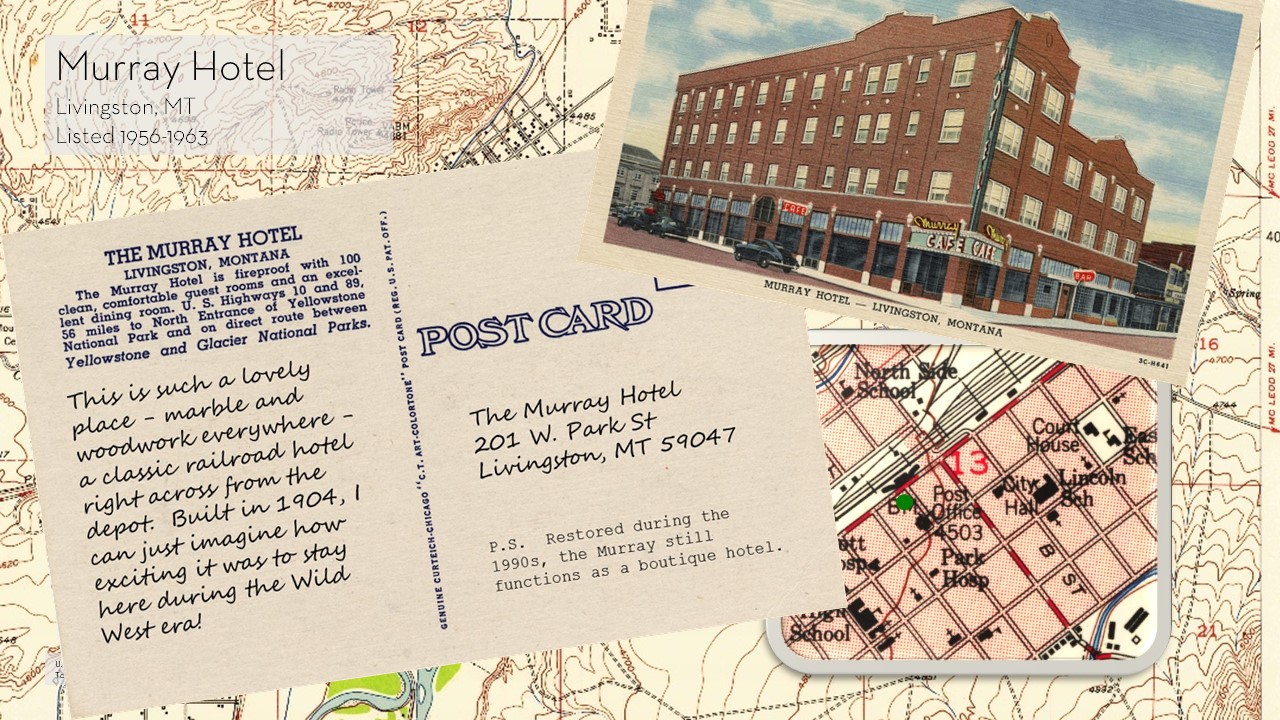 Murray Hotel
Livingston, MT
Listed 1956-1963
11
12
4700
4700
4500
Radio Tower
Police
Radio Tower
BM
4485
4541
MC LEOD 27 MI.
40
Spring
16
4700
4744
MC LEOD 27 MI.
21
4532
CAFE
Murray
CAFE CAFE
BAR
MURRAY HOTEL — LIVINGSTON, MONTANA
5C-H641
THE MURRAY HOTEL
LIVINGSTON, MONTANA
The Murray Hotel is fireproof with 100
clean, comfortable guest rooms and an excel-
lent dining room. U. S. Highways 10 and 89,
56 miles to North Entrance of Yellowstone
National Park and on direct route between
Yellowstone and Glacier National Parks.
This is such a lovely
place - marble and
woodwork everywhere -
a classic railroad hotel
right across from the
depot. Built in 1904, I
can just imagine how
exciting it was to stay
here during the Wild
West era!
GENUINE CURTEICH-CHICAGO "C.T. ART-COLORTONE" POST CARD (REG. U.S. PAT. OFF.)
POST CARD
The Murray Hotel
201 W. Park St
Livingston, MT 59047
P.S. Restored during the
1990s, the Murray still
functions as a boutique hotel.
North Side
School
Court
House
13
Lincoln
Sch
City
Hall
Post
Office
4503
Park
Hosp
B ST
School